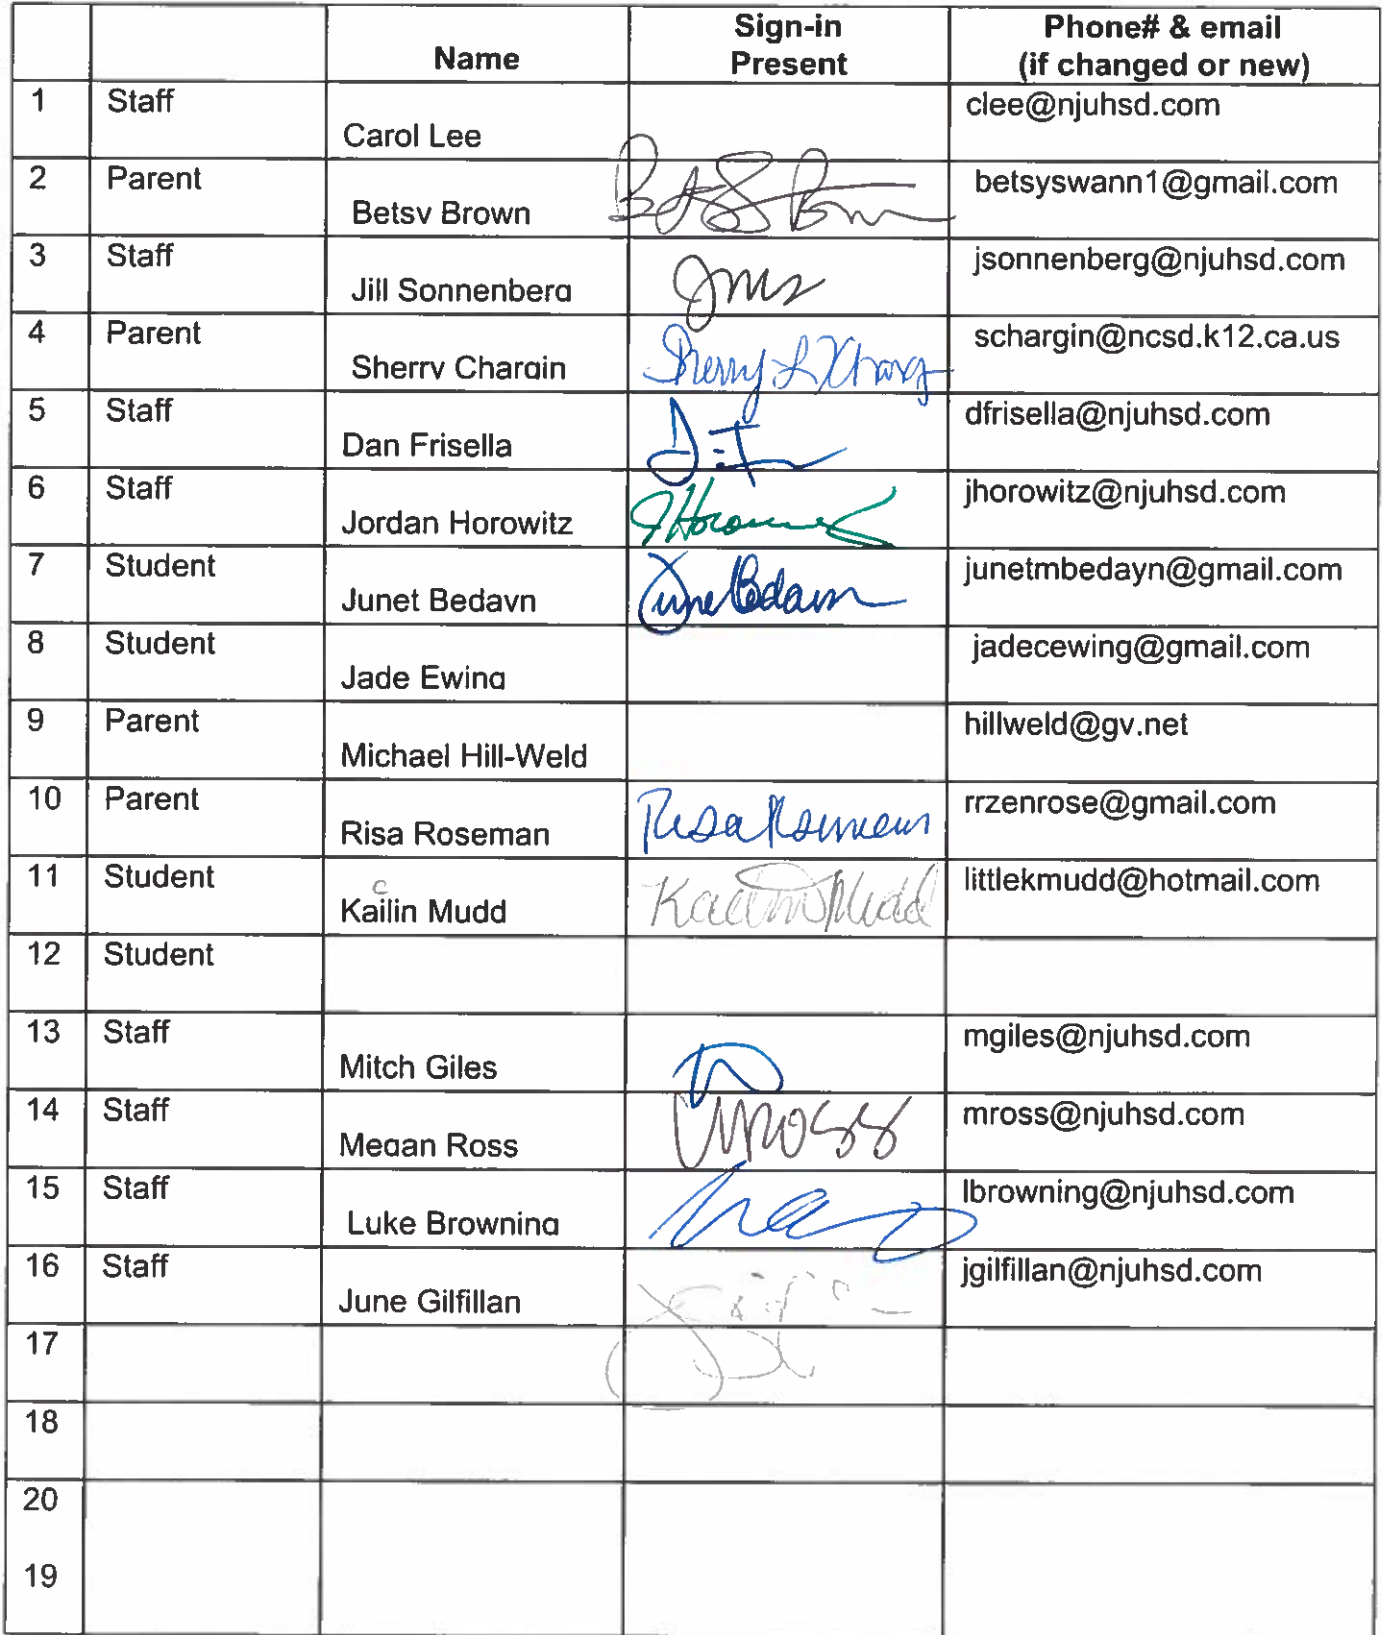 Name Sign-in Present Phone# & email (if changed or new)
1 Staff Carol Lee clee@njuhsd.com
2 Parent Betsy Brown betsyswann1@gmail.com
3 Staff Jill Sonnenberg jsonnenberg@njuhsd.com
4 Parent Sherry Chargin Sherry L Charg schargin@ncsd.k12.ca.us
5 Staff Dan Frisella dfrisella@njuhsd.com
6 Staff Jordan Horowitz jhorowitz@njuhsd.com
7 Student Junet Bedayn junetmbedayn@gmail.com
8 Student Jade Ewing jadecewing@gmail.com
9 Parent Michael Hill-Weld hillweld@gv.net
10 Parent Risa Roseman Risa Roseman rrzenrose@gmail.com
11 Student Kailin Mudd c Kailin Mudd littlekmudd@hotmail.com
12 Student
13 Staff Mitch Giles mgiles@njuhsd.com
14 Staff Megan Ross MRoss mross@njuhsd.com
15 Staff Luke Browning lbrowning@njuhsd.com
16 Staff June Gilfillan jgilfillan@njuhsd.com
17
18
20
19